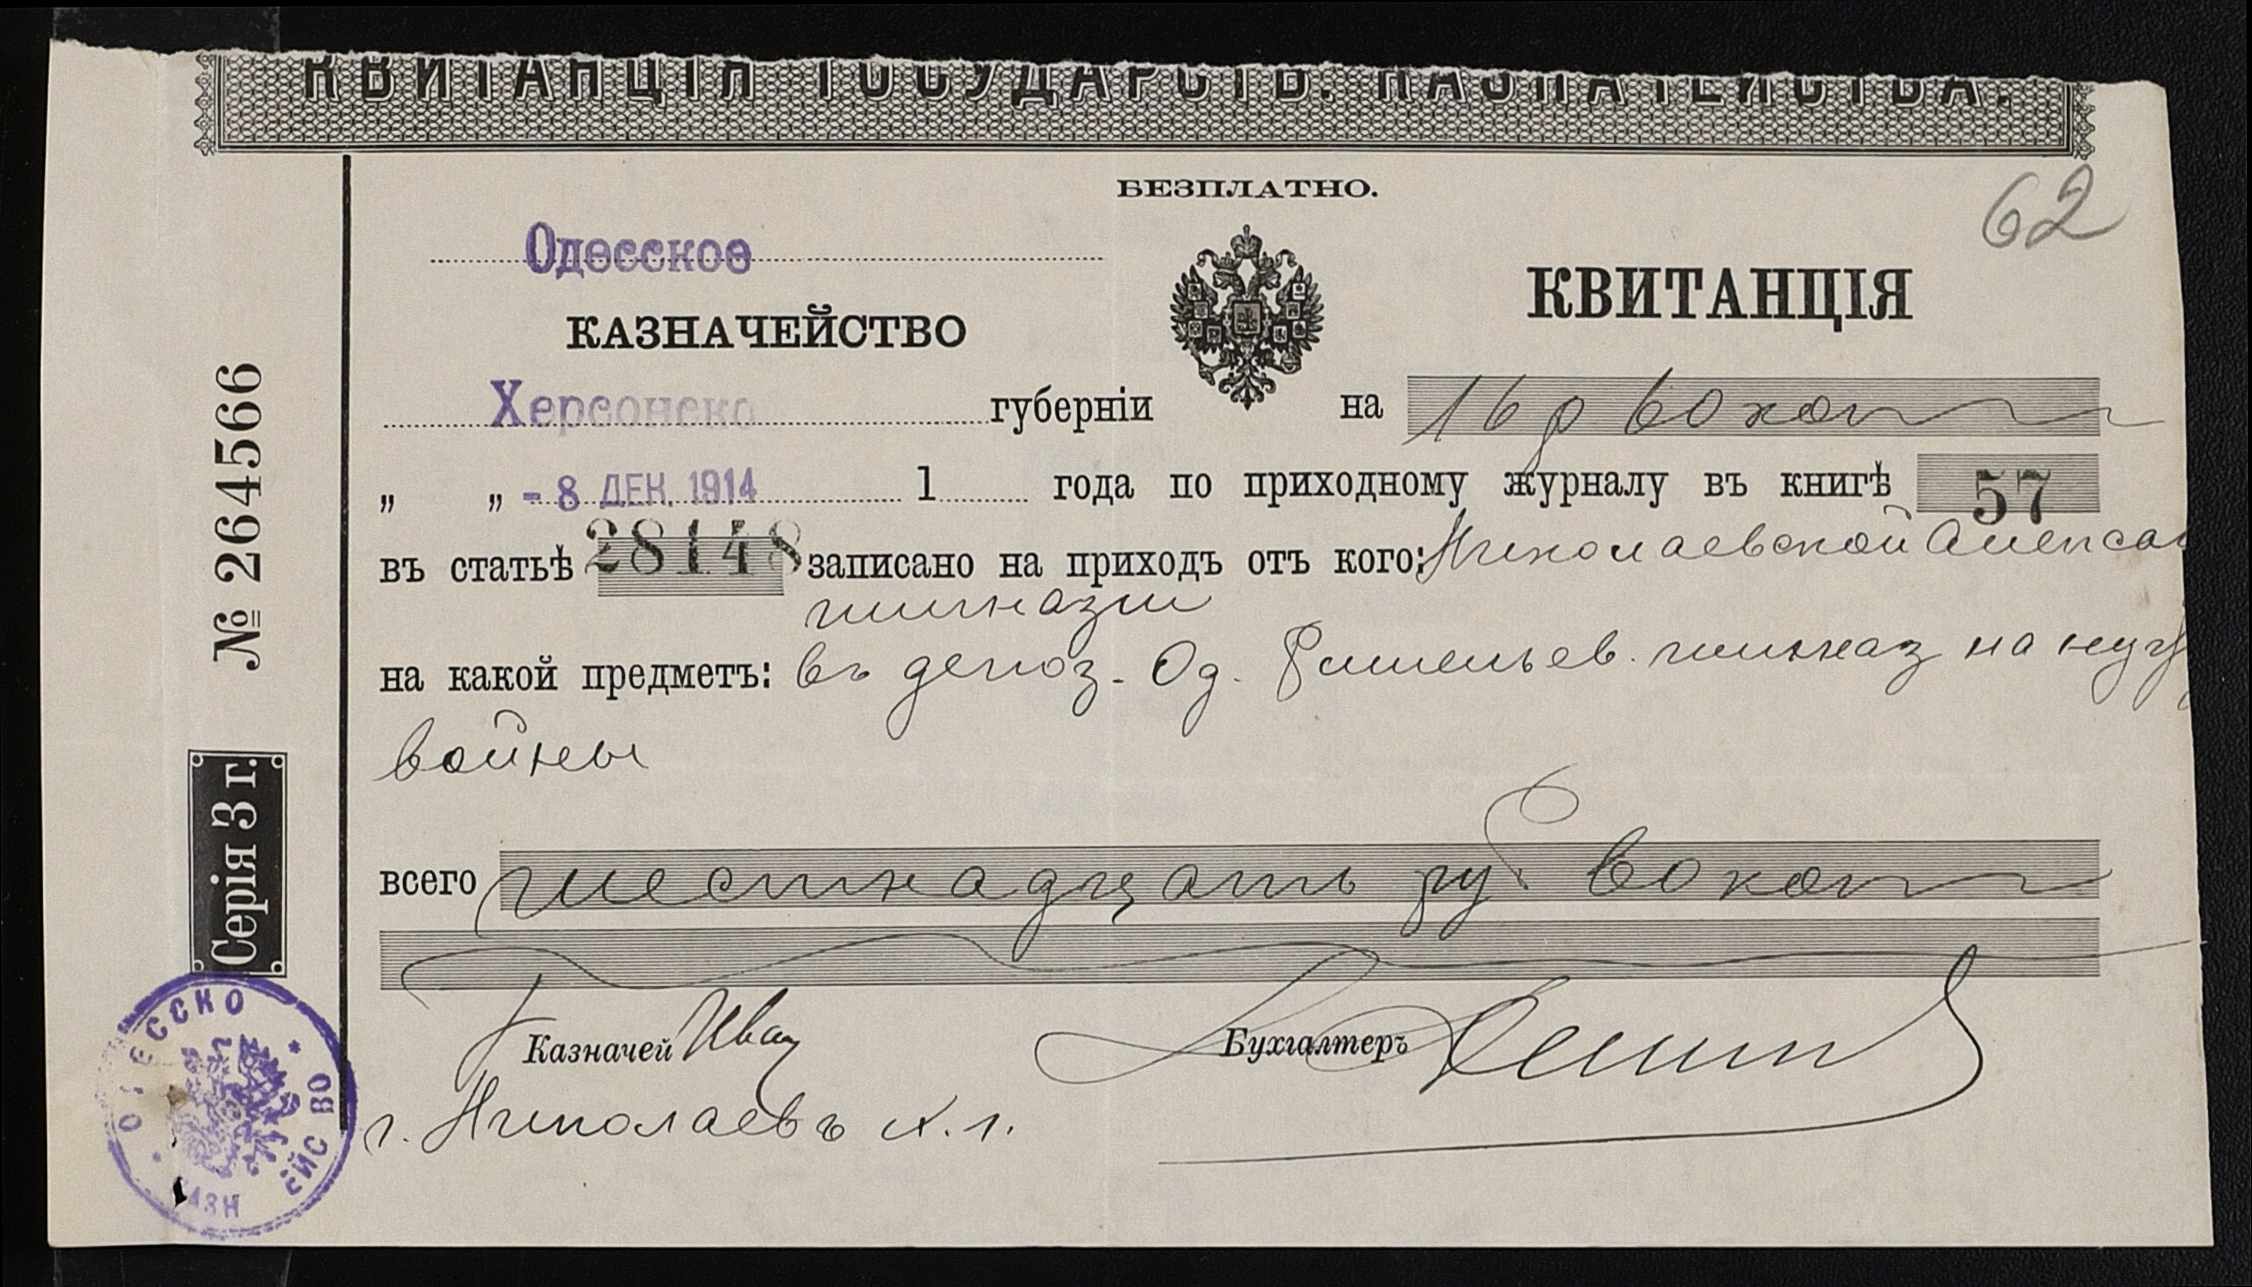 КВИТАНЦІЯ ГОСУДАРСТВ. КАЗНАЧЕЙСТВА.
БЕЗПЛАТНО.
62
Одесское
КАЗНАЧЕЙСТВО
КВИТАНЦІЯ
Херсонско губерніи
на 16 р 60 коп
„ „ - 8 ДЕК. 1914 1 года по приходному журналу въ книгѣ 57
въ статьѣ 28148 записано на приходъ отъ кого: Николаевской Алекса
гимназіи
на какой предметъ: въ депоз. Од. Ришельев. гимназ на нуж
войны
всего шестнадцать ру 60 коп
Казначей Ива
Бухгалтеръ
г. Николаевъ х. г.
№ 264566
Серія 3 г.
ОДЕССКО КАЗН ЕЙС ВО